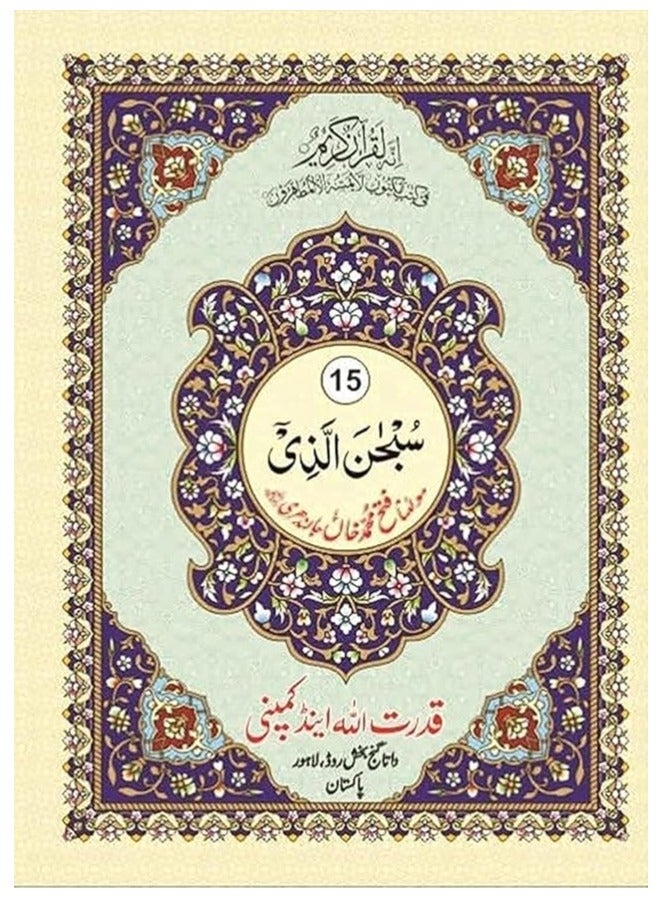 إنه لقرآن كريم
في كتب مكنون لا يمسه إلا المطهرون
15
سُبْحٰنَ الَّذِىْٓ
مولانا فتح محمد خاں جالندھری
قدرت اللہ اینڈ کمپنی
داتا گنج بخش روڈ، لاہور
پاکستان